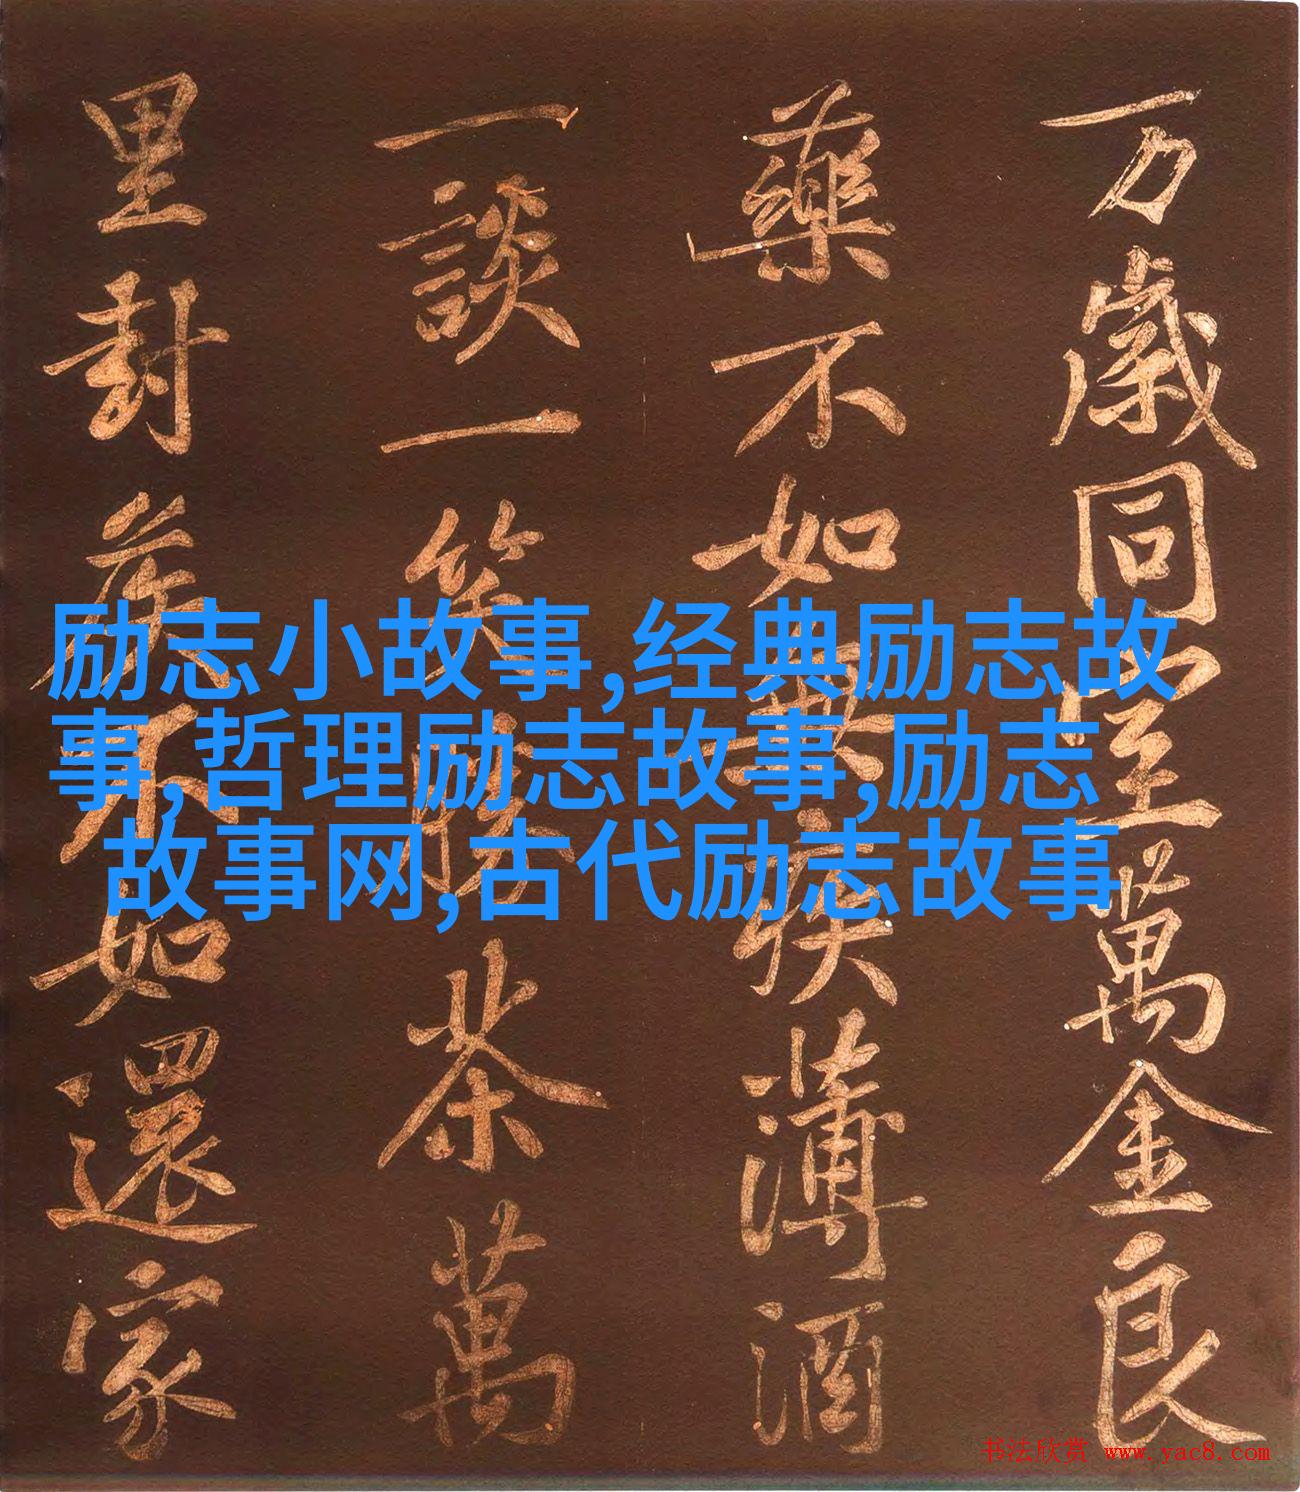 万歲同室萬金良
藥不如無疾薄酒
一談一笑勝茶萬
里封矦不如還家
励志小故事,经典励志故
事,哲理励志故事,励志
故事网,古代励志故事
书法欣赏 www.yac8.com